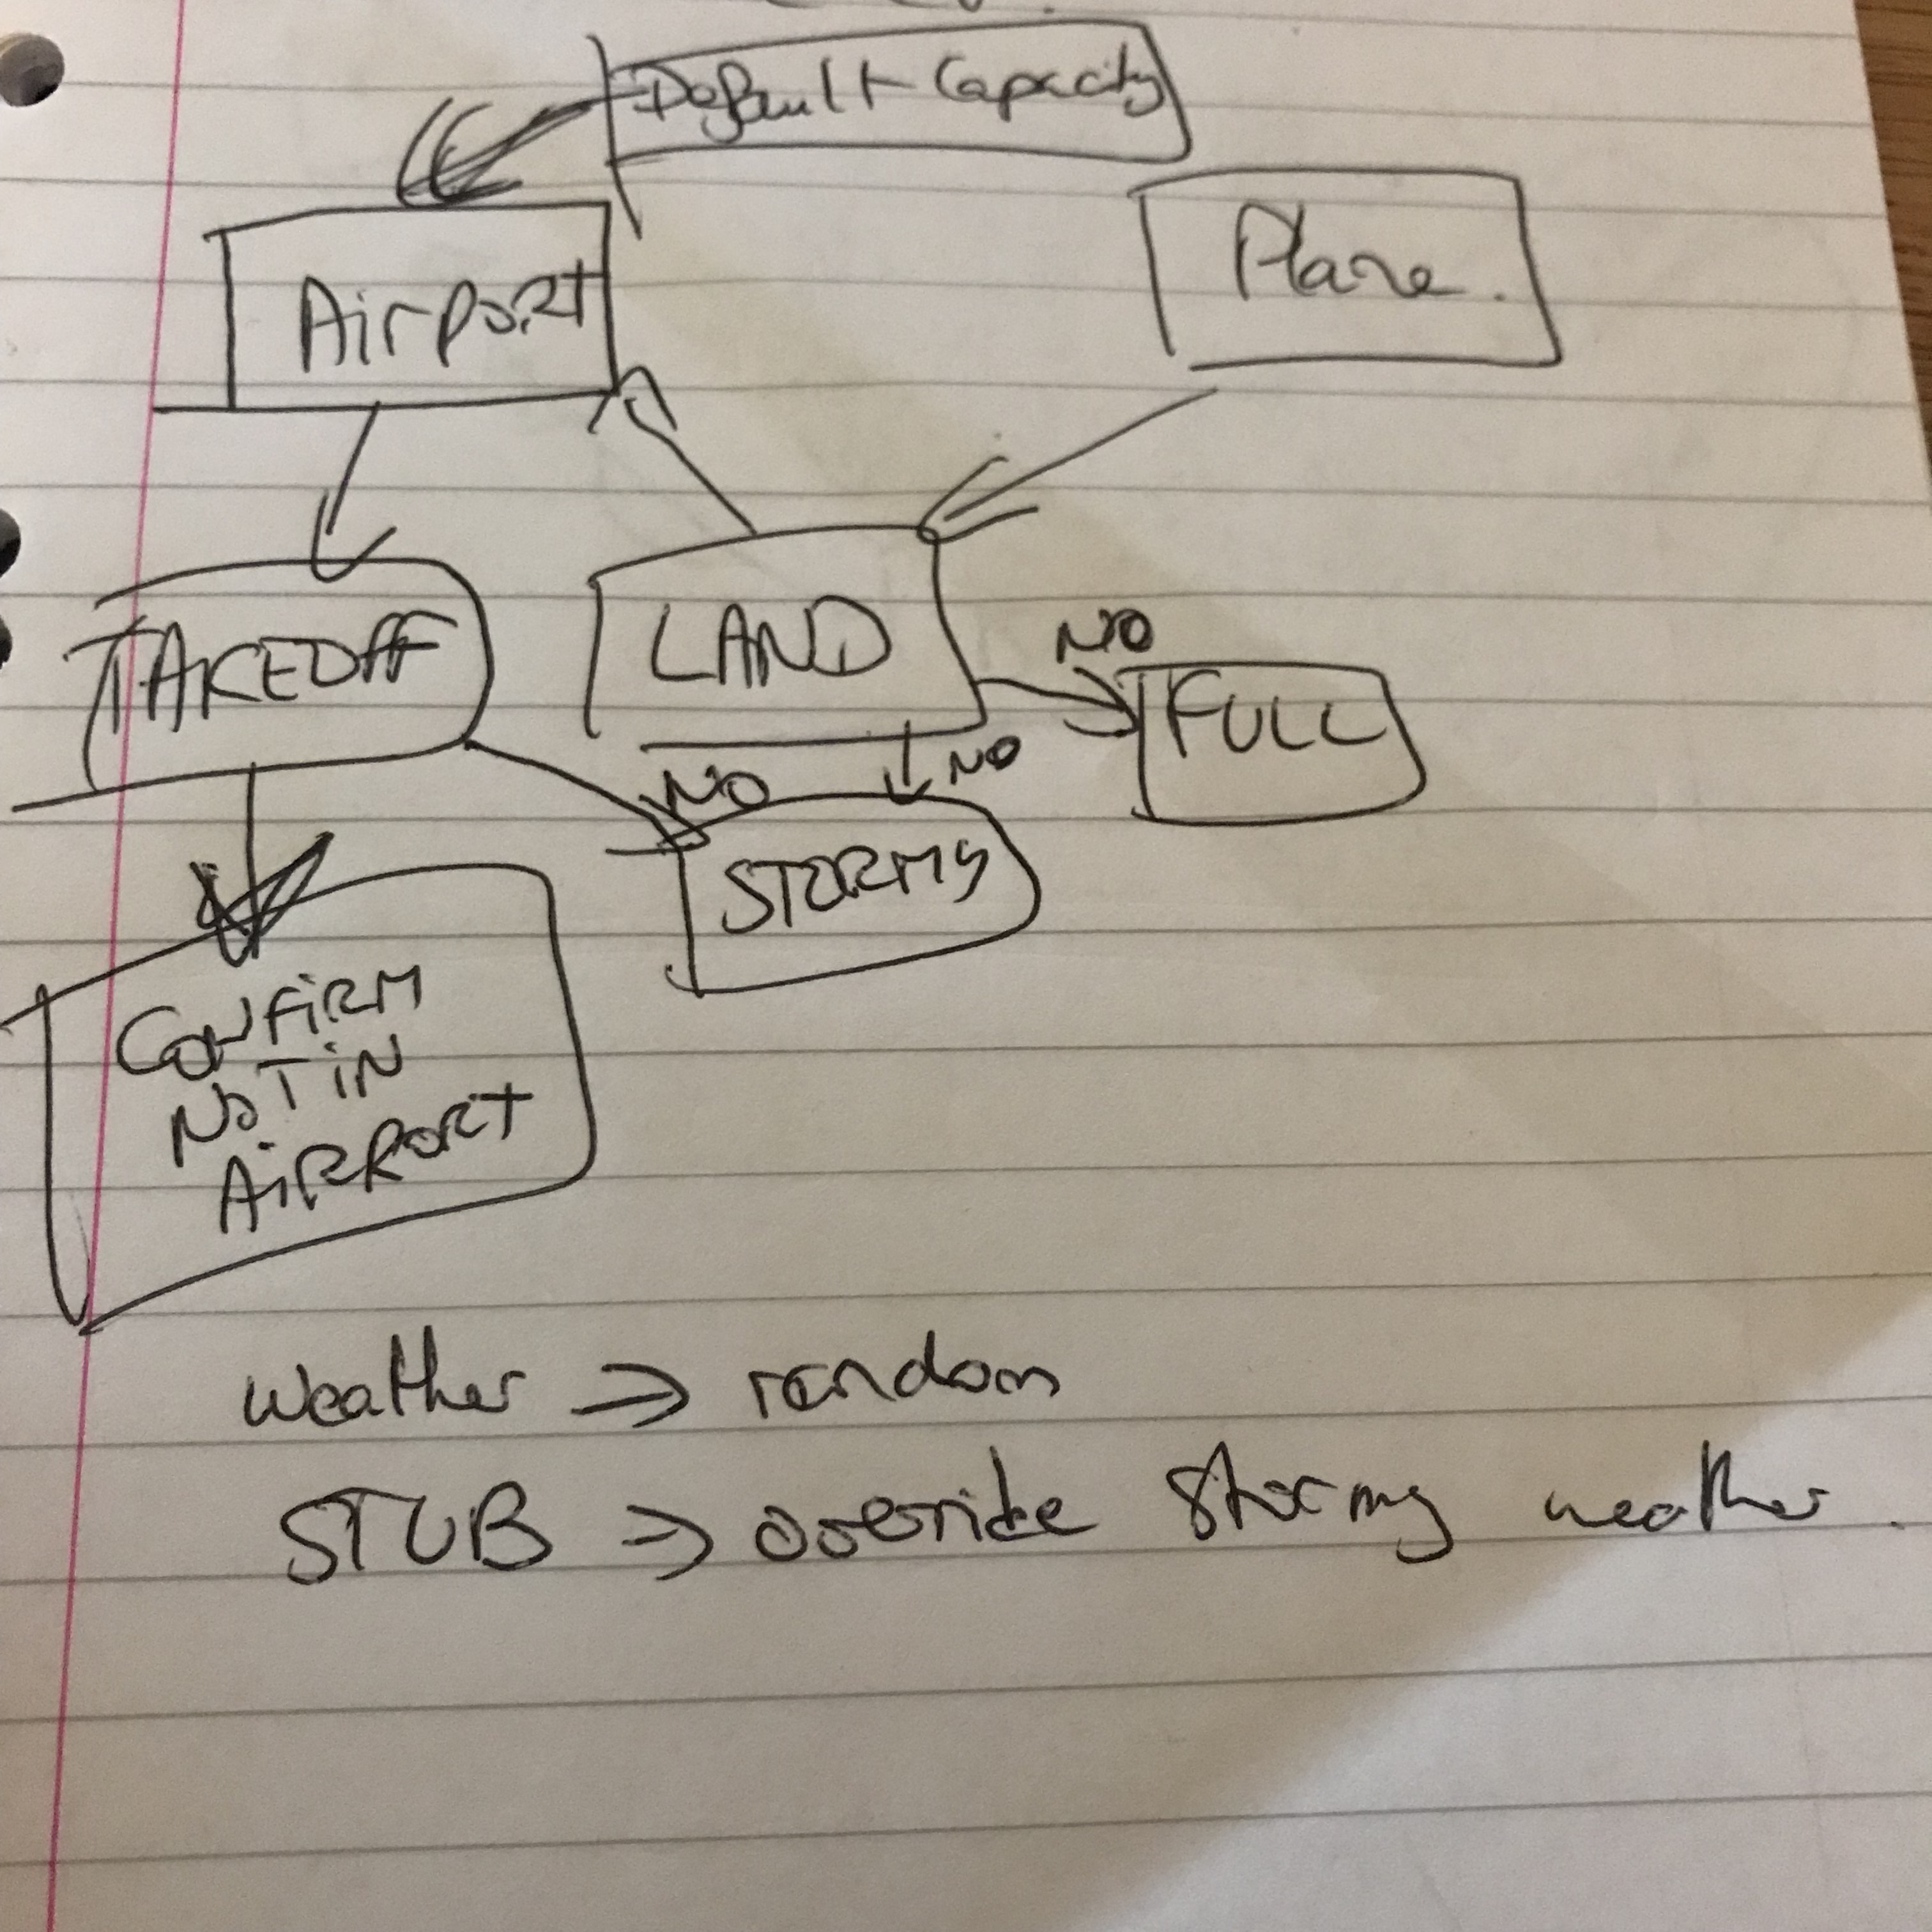 Default Capacity
Airport
Plane.
TAKEOFF
LAND
NO
FULL
NO
NO
STORMY
CONFIRM
NOT IN
AIRPORT
weather ⇒ random
STUB ⇒ override stormy weather.